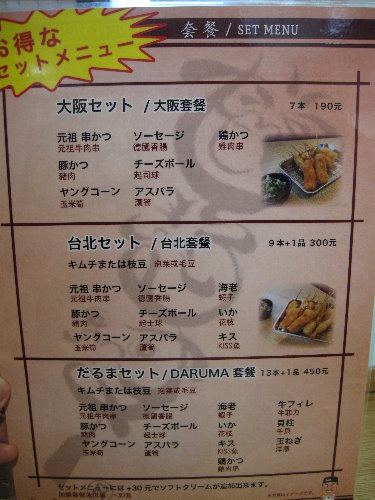 お得な
セットメニュー
套餐 / SET MENU
大阪セット / 大阪套餐 7本 190元
元祖 串かつ ソーセージ 鶏かつ
元祖牛肉串 德國香腸 雞肉串
豚かつ チーズボール
豬肉 起司球
ヤングコーン アスパラ
玉米筍 蘆筍
台北セット / 台北套餐 9本+1品 300元
キムチまたは枝豆 泡菜或毛豆
元祖 串かつ ソーセージ 海老
元祖牛肉串 德國香腸 蝦子
豚かつ チーズボール いか
豬肉 起士球 花枝
ヤングコーン アスパラ キス
玉米筍 蘆筍 KISS魚
だるまセット / DARUMA 套餐 13本+1品 450元
キムチまたは枝豆 泡菜或毛豆
元祖 串かつ ソーセージ 海老 牛フィレ
元祖牛肉串 德國香腸 蝦子 牛菲力
豚かつ チーズボール いか 貝柱
豬肉 起士球 花枝 干貝
ヤングコーン アスパラ キス 玉ねぎ
玉米筍 蘆筍 KISS魚 洋蔥
鶏かつ
雞肉串
セットメニューには+30元でソフトクリームが追加出来ます。